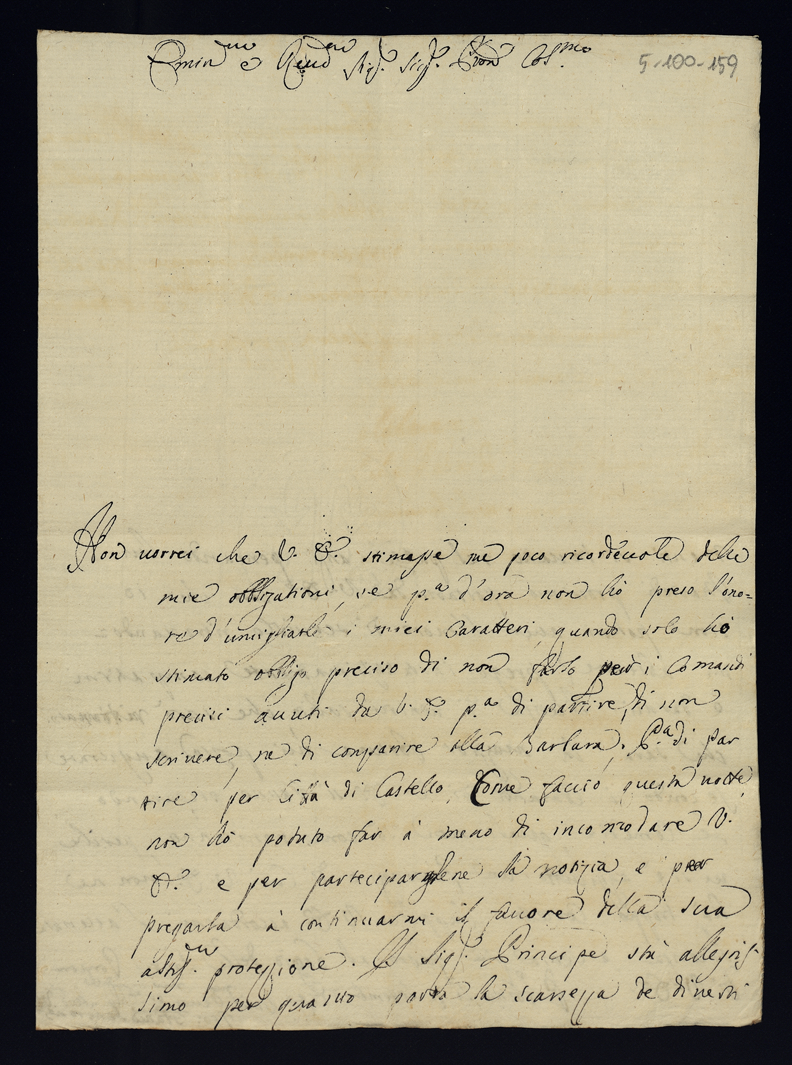 Emin.mo e Rev.mo Sig.r Sig.r Pron Col.mo
5-100-159
Non uorrei che V. E. stimasse me poco ricordeuole delle
mie obbligationi, se p.a d'ora non hò preso l'ono=
re d'umigliarle i miei Caratteri, quando solo hò
stimato obbligo preciso di non farlo per i Comandi
precisi auuti da V. E. p.a di partire, di non
scriuere, ne di comparire alla Barbara. P.a di par
tire per Città di Castello, Come faccio questa notte,
non hò potuto far à meno di incomodare V.
E. e per participargliene la notizia, e per
pregarla à continuarmi il fauore della sua
protezzione. Il Sig.r Principe stà allegris
simo per quanto porta la scarsezza de diuerti